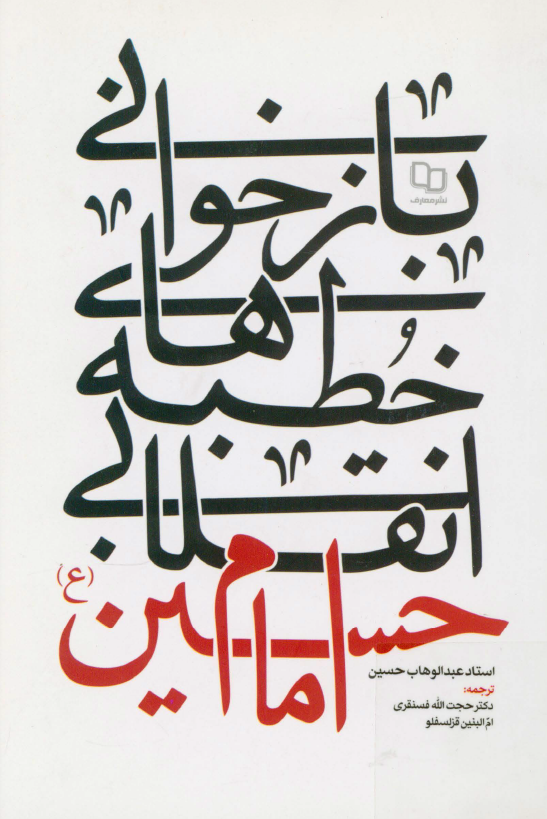 بازخوانی
خطبه‌های
انقلابی
امام حسین (ع)
نشر معارف
استاد عبدالوهاب حسین
ترجمه:
دکتر حجت الله فسنقری
امّ البنین قزلسفلو